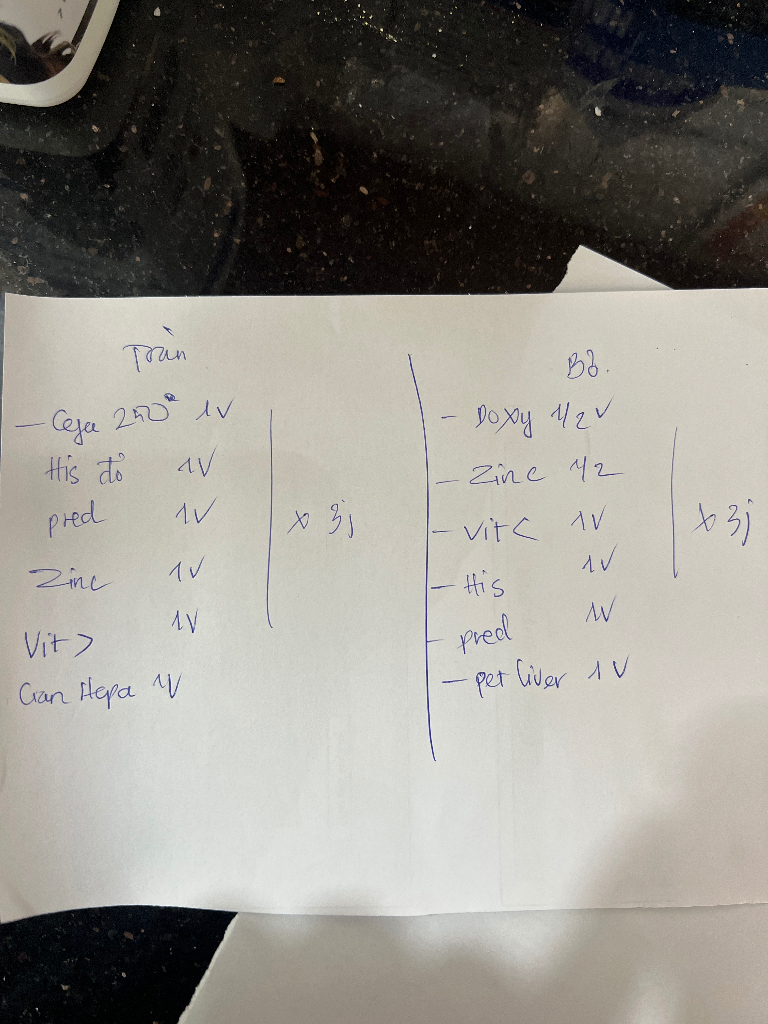 Tràn
- Cefa 250 1V
His đỏ 1V
pred 1V
x 3j
Zinc 1V
Vit > 1V
Gan Hepa 1V
Bỏ.
- Doxy 1/2 V
- Zinc 1/2
- Vit C 1V
x 3j
- His 1V
- pred 1V
- pet liver 1V